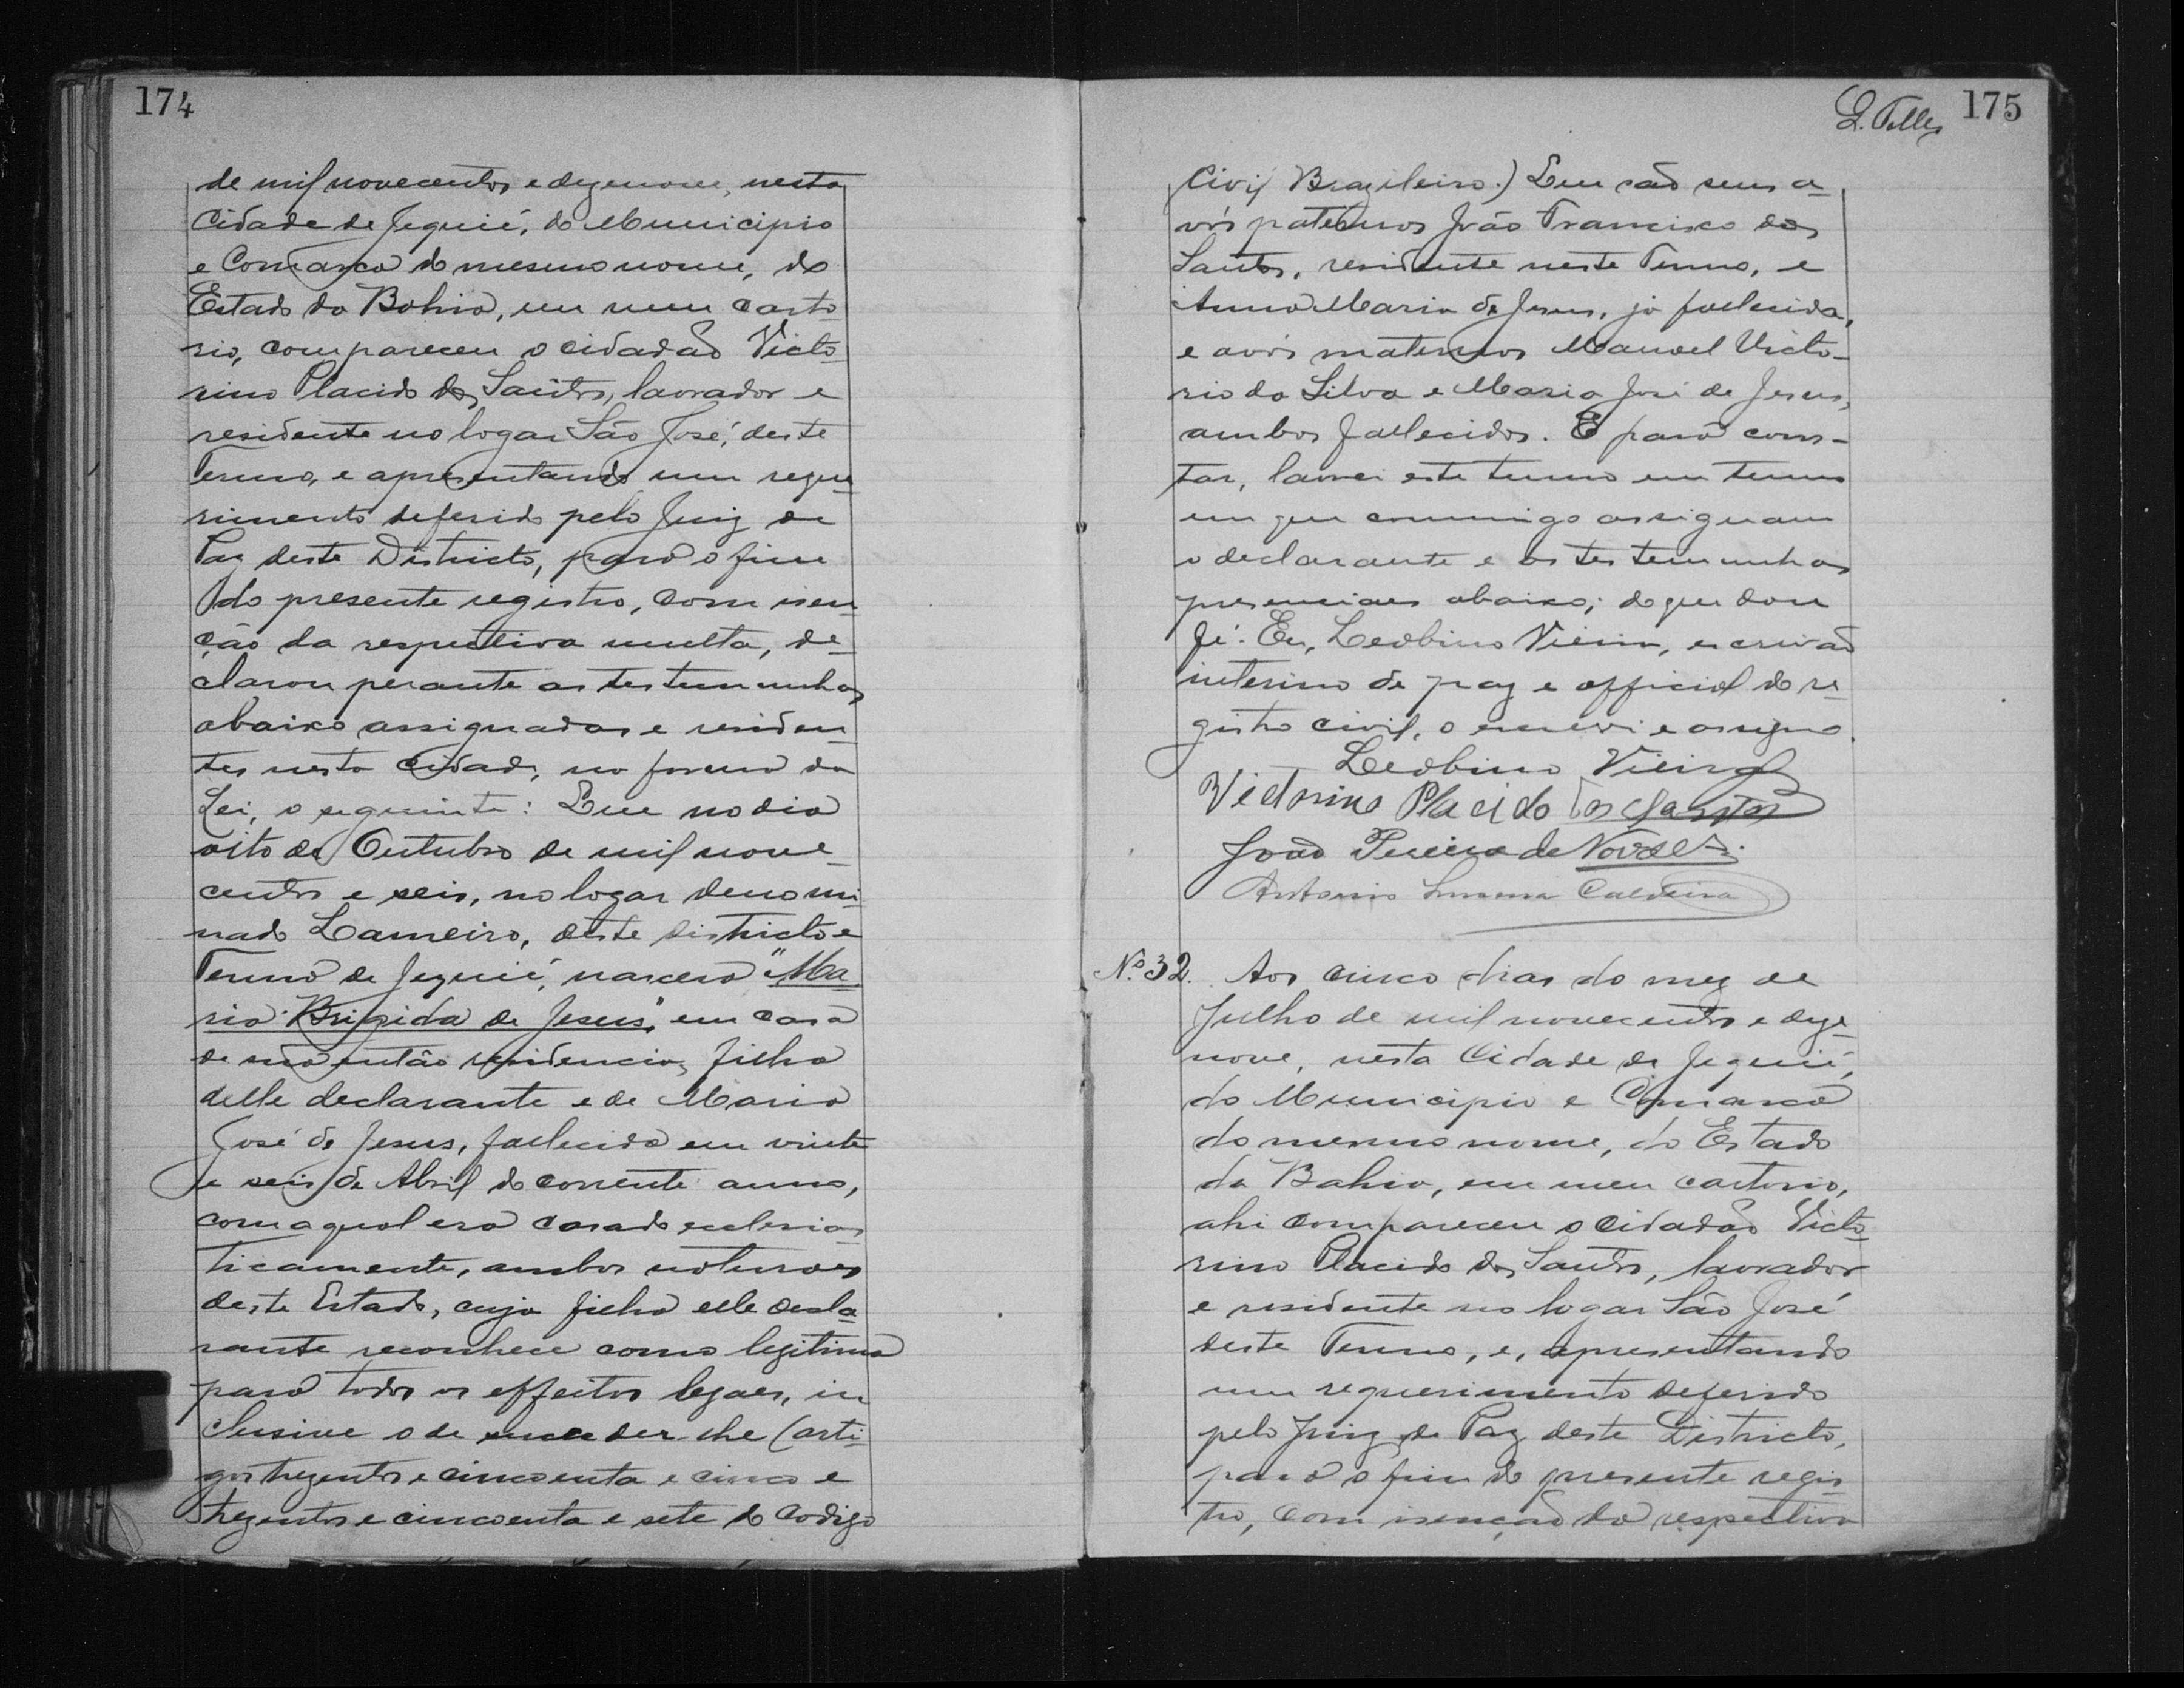 174
de mil novecentos e dezenove, nesta
Cidade de Jequié, do Municipio
e Comarca do mesmo nome, do
Estado da Bahia, em meu carto
rio, compareceu o cidadão Victo
rino Placido dos Santos, lavrador e
residente no logar São José, deste
Termo, e apresentando um reque
rimento deferido pelo Juiz de
Paz deste Districto, para o fim
do presente registro, com isen
ção da respectiva multa, de-
clarou perante as testemunhas
abaixo assignadas e residen-
tes nesta cidade, na forma da
Lei, o seguinte: Que no dia
oito de Outubro de mil nove-
centos e seis, no logar denomi
nado Lameiro, deste districto e
Termo de Jequié, nascera "Ma
ria Brigida de Jesus," em casa
de sua então residencia, filha
delle declarante e de Maria
José de Jesus, fallecida em vinte
e seis de Abril do corrente anno,
com a qual era casado ecclesias
ticamente, ambos naturaes
deste Estado, cuja filha elle decla
rante reconhece como legitima
para todos os effeitos legaes, in
clusive o de succeder-lhe (arti-
gos trezentos e cincoenta e cinco e
trezentos e cincoenta e sete do Codigo
L. Telles 175
Civil Brazileiro.) Que são seus a-
vós paternos João Francisco dos
Santos, residente neste Termo, e
Anna Maria de Jesus, já fallecida,
e avós maternos Manoel Victo-
rio da Silva e Maria José de Jesus,
ambos fallecidos. E para cons-
tar, lavrei este termo em termo
em que commigo assignam
o declarante e as testemunhas
presenciaes abaixo; do que dou
fé. Eu, Leobino Vieira, escrivão
interino de paz e official do re-
gistro civil, o escrevi e assigno.
Leobino Vieira
Victorino Placido dos Santos
João Pereira de Novaes.
Antonio Caldeira
Nº 32. Aos cinco dias do mez de
Julho de mil novecentos e deze-
nove, nesta Cidade de Jequié,
do Municipio e Comarca
do mesmo nome, do Estado
da Bahia, em meu cartorio,
ahi compareceu o cidadão Victo
rino Placido dos Santos, lavrador
e residente no logar São José
deste Termo, e, apresentando
um requerimento deferido
pelo Juiz de Paz deste Districto,
para o fim do presente regis
tro, com isenção da respectiva